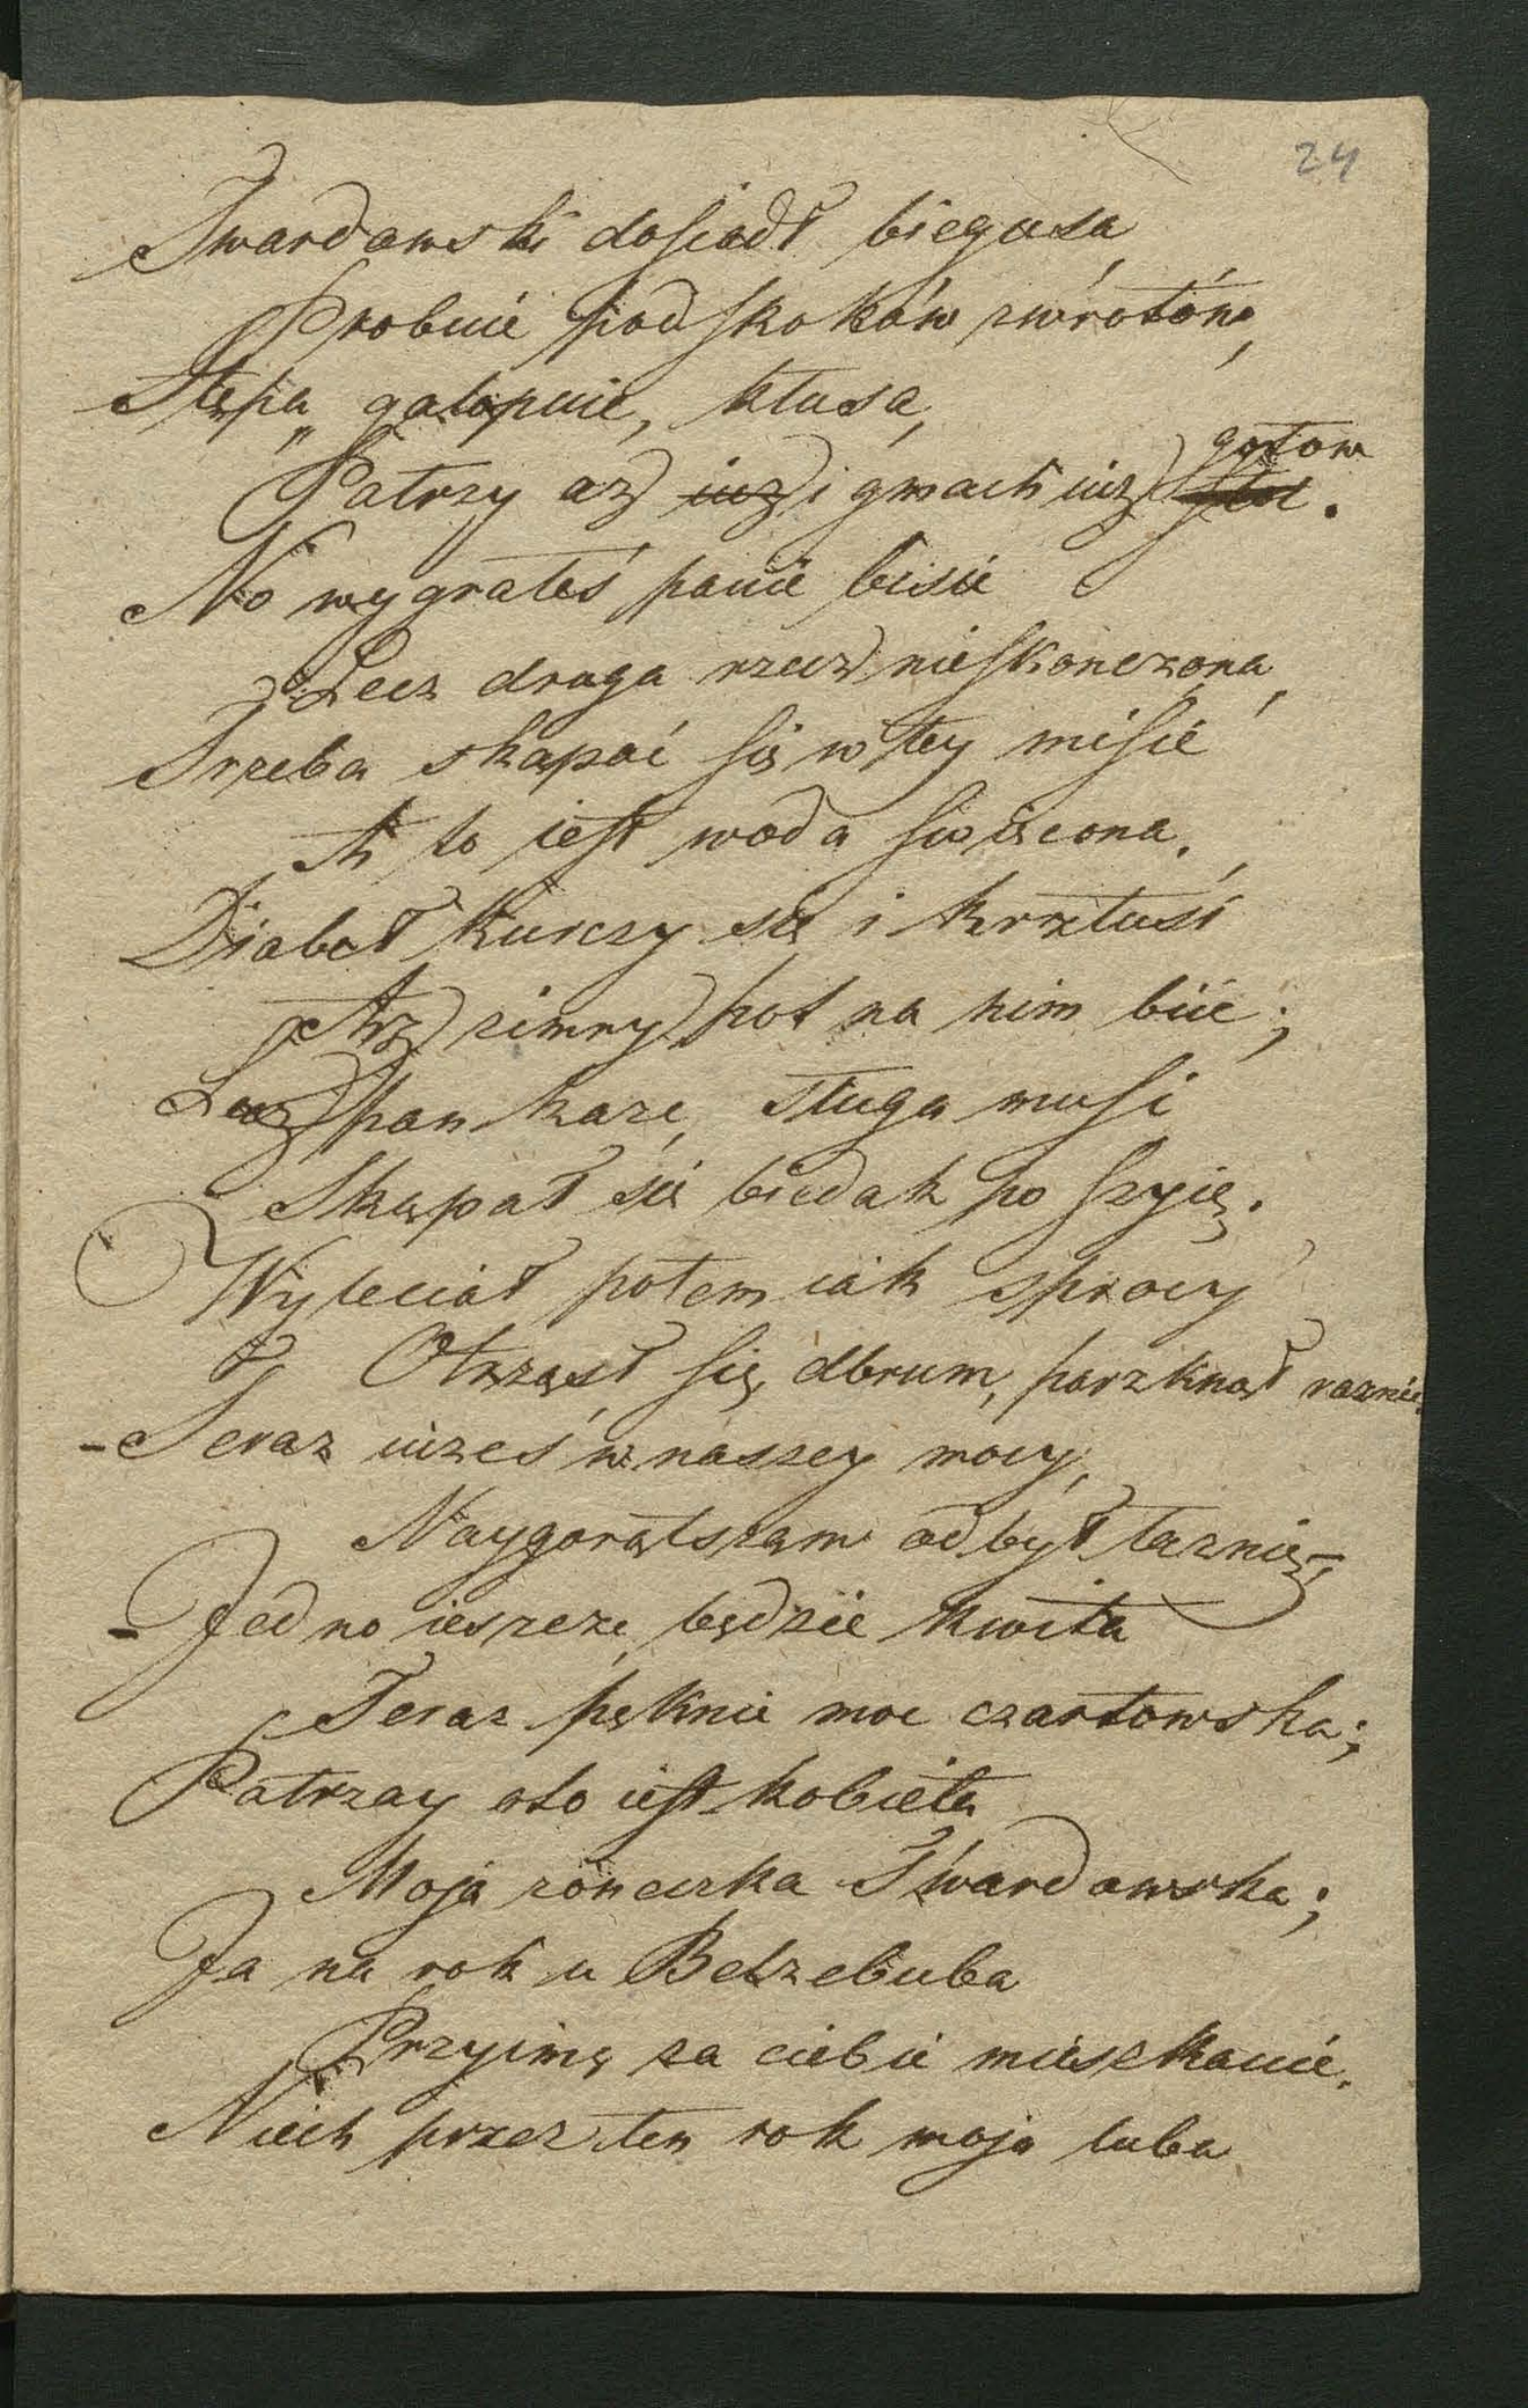 24
Twardowski dosiadł biegusa,
Probuie podskoków, zwrótów,
Stępa, galopuie, kłusa,
gotow
Patrzy az iuz i gmach iuz .
No wygrałeś panie bisie
Lecz druga rzecz nieskonczona,
Trzeba skąpać się w tey misie
A to iest woda swięcona.
Diabeł kurczy się i krztusi
Aż zimny pot na nim biie;
Lecz pan kaze, sługa musi
Skąpał się biedak po szyię.
Wyleciał potem iak z procy
Otrząsł się, dbrum, parzknął raznie.
- Teraz iużeś w naszey mocy,
Naygorętsząm odbył łaznię,
- Jedno ieszcze, będzie kwita
Teraz pęknie moc czartowska;
Patrzay oto iest kobieta
Moja żoneczka Twardowska;
Ja na rok u Belzebuba
Przyimę za ciebie mieszkanie.
Niech przez ten rok moja luba